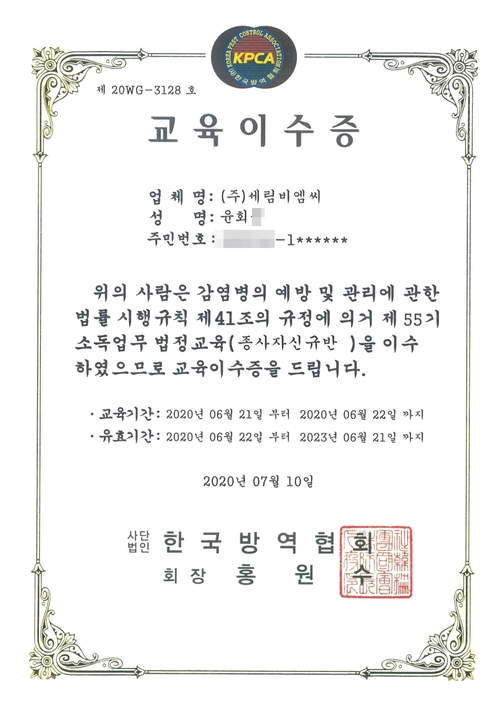 KOREA PEST CONTROL ASSOCIATION
KPCA
(사)한국방역협회
제 20WG-3128 호
교육이수증
업 체 명: (주)세림비엠씨
성 명: 윤희
주민번호: -1******
위의 사람은 감염병의 예방 및 관리에 관한
법률 시행규칙 제41조의 규정에 의거 제 55기
소독업무 법정교육(종사자신규반 )을 이수
하였으므로 교육이수증을 드립니다.
· 교육기간: 2020년 06월 21일 부터 2020년 06월 22일 까지
· 유효기간: 2020년 06월 22일 부터 2023년 06월 21일 까지
2020년 07월 10일
사단
법인 한국방역협회
회장 홍 원 수